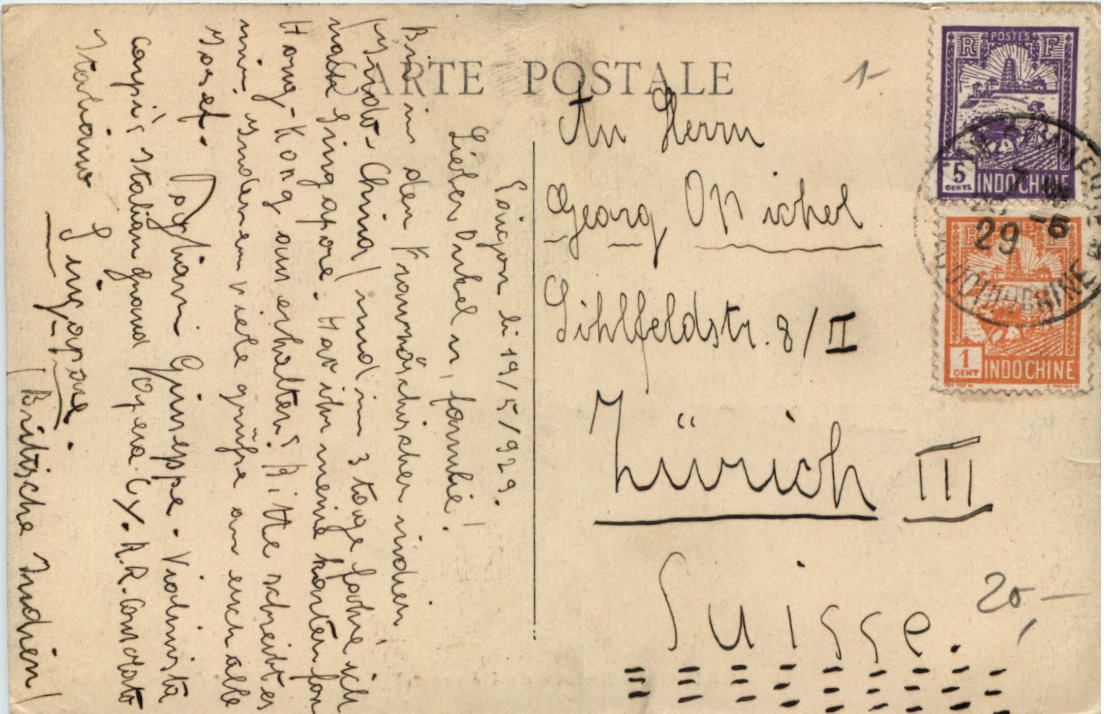 CARTE POSTALE
1-
An Herrn
Georg
Sihlfeldstr. 8/II
Zürich III
Suisse.
20,-
POSTES
R F
5 CENTS
INDOCHINE
1 CENT
INDOCHINE
29 -6
INDOCHINE
Saigon 19/5/929.
Lieber Onkel u, familie!
Bin in den Französischen indien
/Indo-China/ und in 3 tage fahre ich
nach Singapore. ihr meine karten fon
Hong-Kong aus erhalten? Bitte schreibt es
mir, viele grüße an euch alle
Josef.
Giuseppe. Violinista
Italian Grand Opera Cy.
Italiano Singapore.
/Britische Indien/